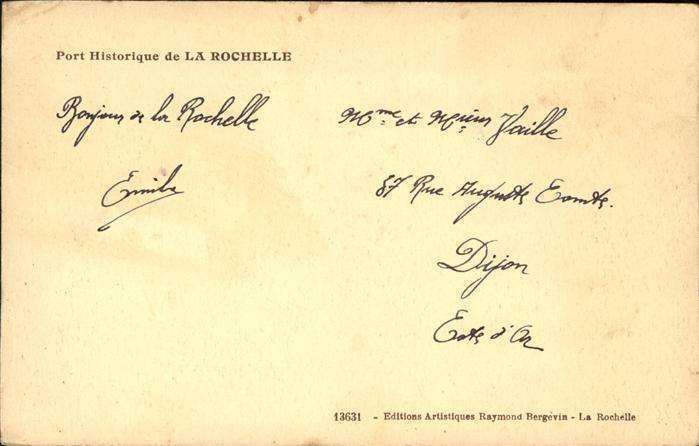 Port Historique de LA ROCHELLE
Bonjour de la Rochelle
Emile
Mme et Msieur Vaille
87 Rue Auguste Comte.
Dijon
Cote d'Or
13631 - Editions Artistiques Raymond Bergevin - La Rochelle